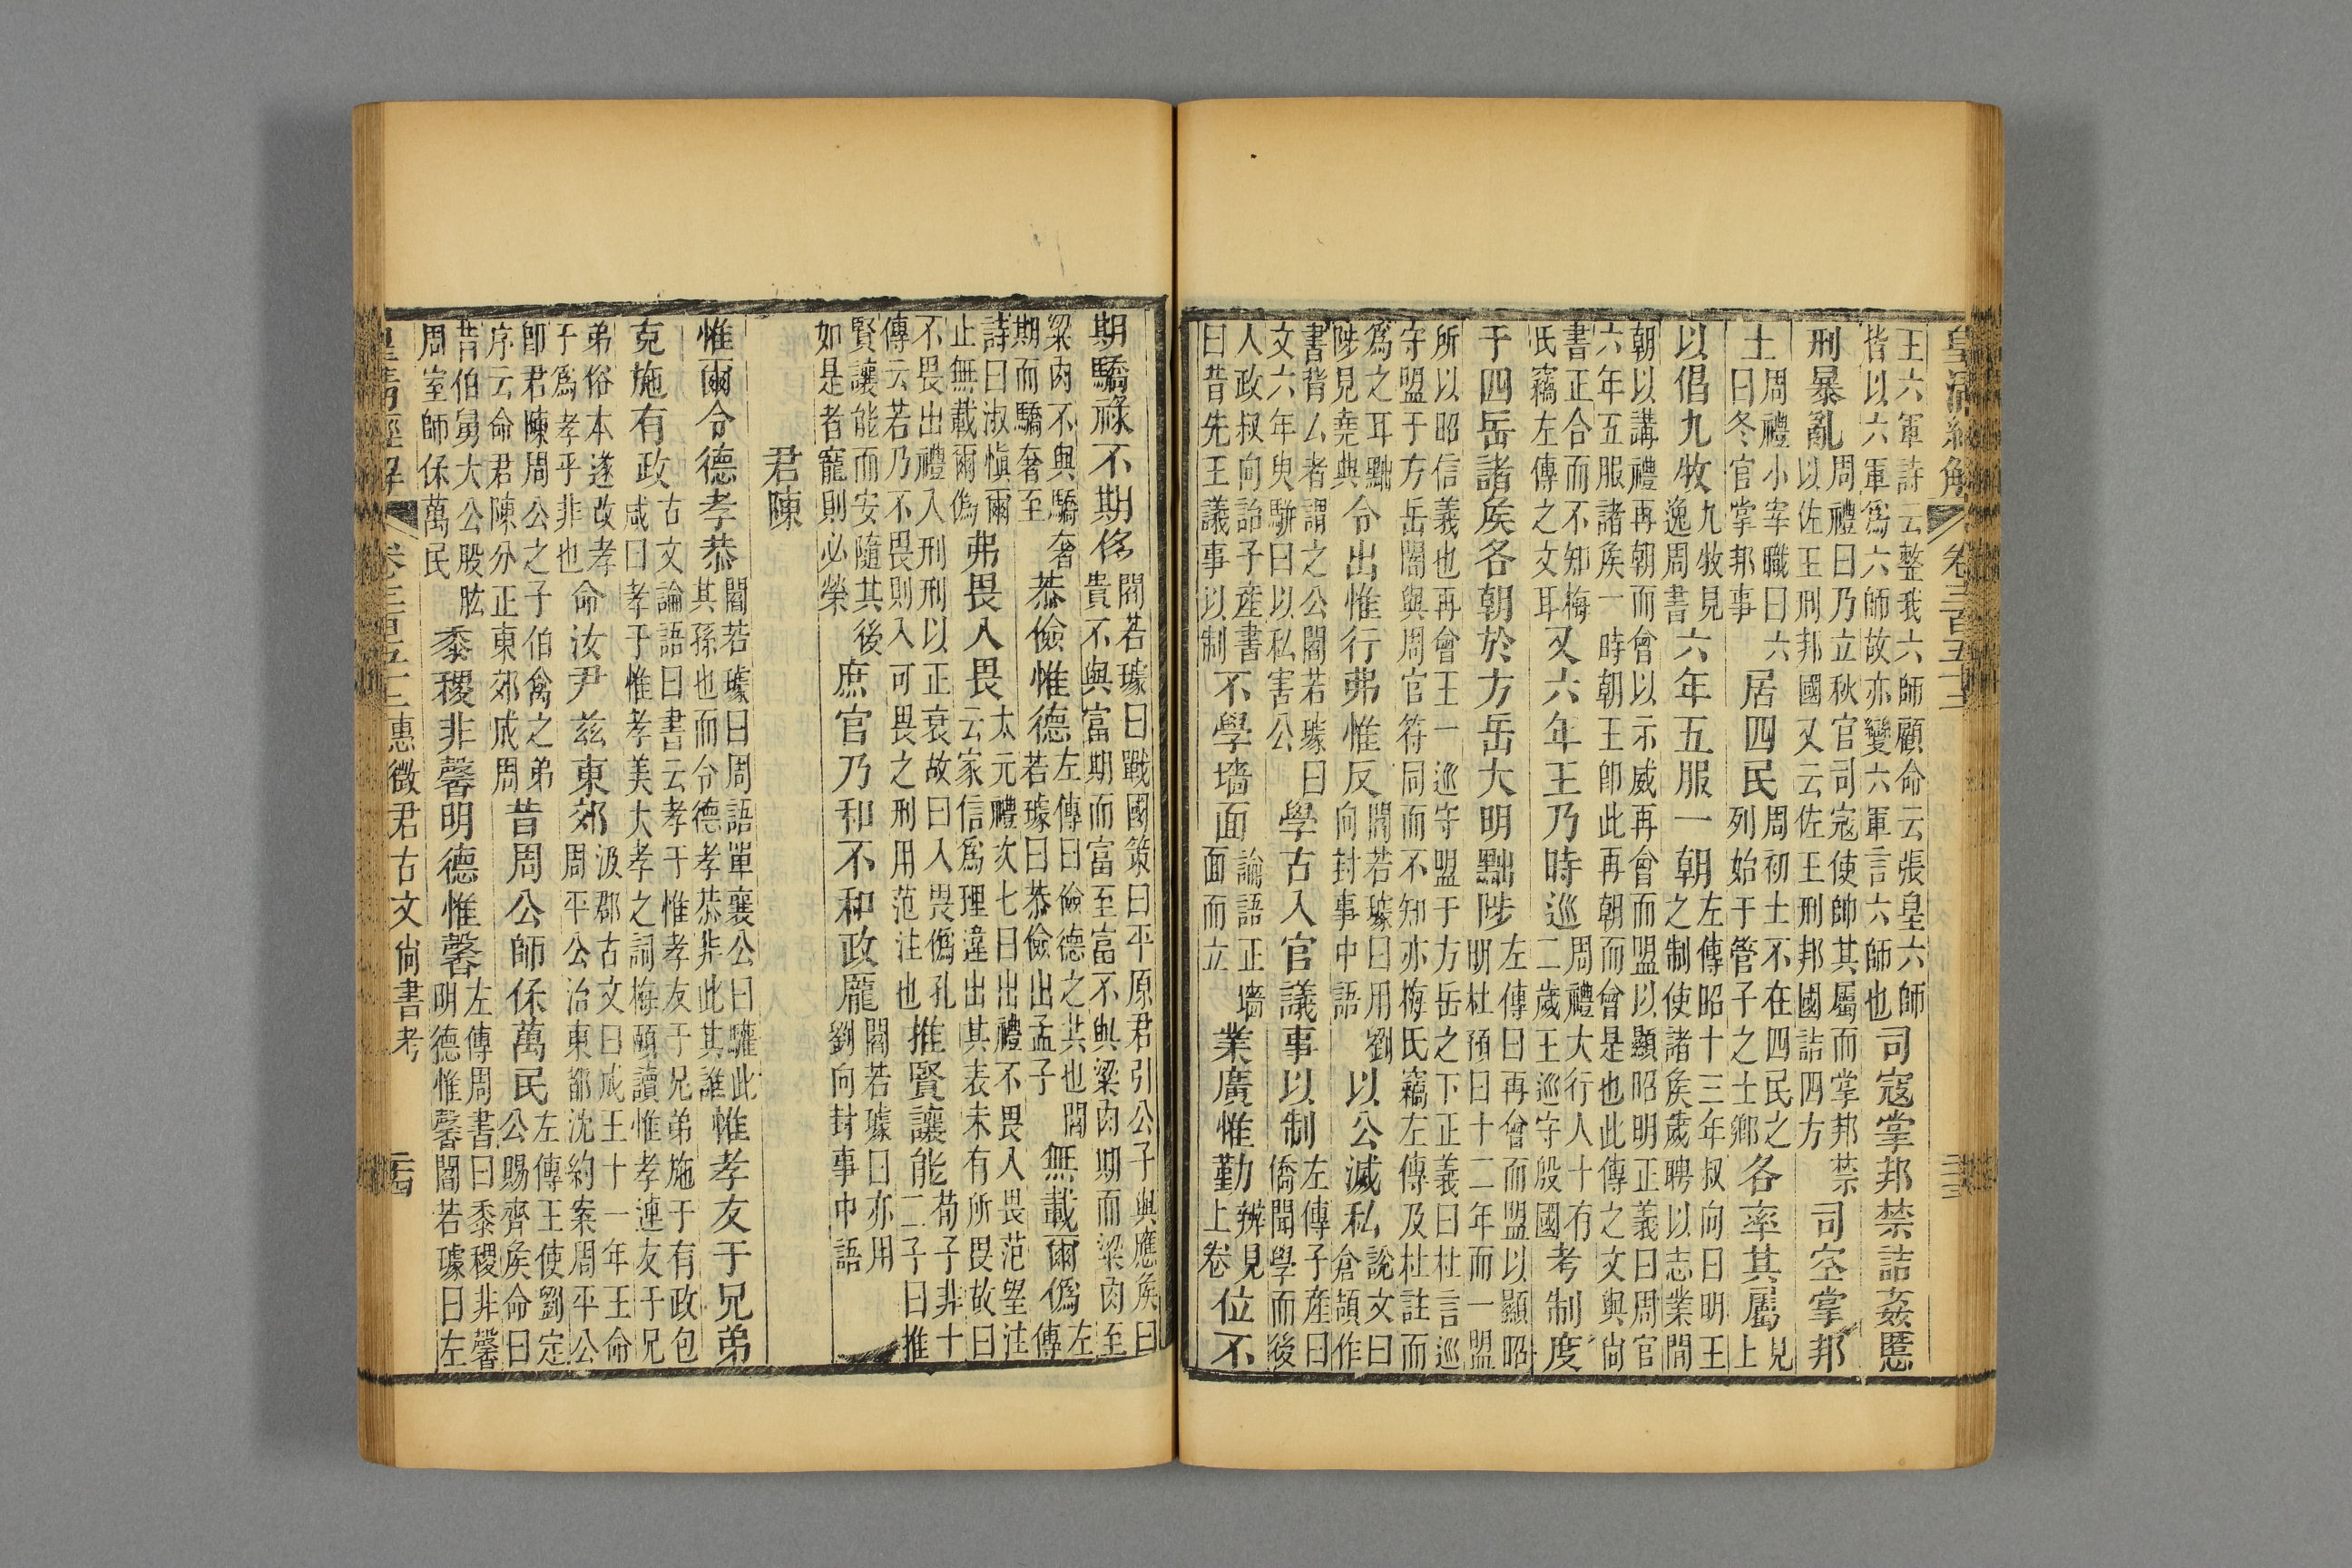 皇清經解 卷三百五十二
王六軍詩云整我六師顧命云張皇六師
皆以六軍爲六師故亦變六軍言六師也
司寇掌邦禁詰姦慝
刑暴亂
周禮曰乃立秋官司寇使帥其屬而掌邦禁
以佐王刑邦國又云佐王刑邦國詰四方
司空掌邦
土
周禮小宰職曰六
曰冬官掌邦事
居四民
周初士不在四民之
列始于管子之士鄉
各率其屬
見
上
以倡九牧
九牧見
逸周書
六年五服一朝
左傳昭十三年叔向曰明王
之制使諸矦歲聘以志業閒
朝以講禮再朝而會以示威再會而盟以顯昭明正義曰周官
六年五服諸矦一時朝王卽此再朝而會是也此傳之文與尙
書正合而不知梅
氏竊左傳之文耳
又六年王乃時巡
周禮大行人十有
二歲王巡守殷國
考制度
于四岳諸矦各朝於方岳大明黜陟
左傳曰再會而盟以顯昭
明杜預曰十二年而一盟
所以昭信義也再會王一巡守盟于方岳之下正義曰杜言巡
守盟于方岳闇與周官符同而不知亦梅氏竊左傳及杜註而
爲之耳黜
陟見堯典
令出惟行弗惟反
閻若璩曰用劉
向封事中語
以公滅私
說文曰
倉頡作
書背厶者謂之公閻若璩曰
文六年臾騈曰以私害公
學古入官議事以制
左傳子產曰
僑聞學而後
入政叔向詒子產書
曰昔先王議事以制
不學墻面
論語正墻
面而立
業廣惟勤
辨見
上卷
位不
期驕祿不期侈
閻若璩曰戰國策曰平原君引公子與應矦曰
貴不與富期而富至富不與粱肉期而粱肉至
粱肉不與驕奢
期而驕奢至
恭儉惟德
左傳曰儉德之共也閻
若璩曰恭儉出孟子
無載爾僞
左
傳
詩曰淑愼爾
止無載爾僞
弗畏入畏
太元禮次七曰出禮不畏入畏范望注
云家信爲理違出其表未有所畏故曰
不畏出禮入刑刑以正衰故曰入畏僞孔
傳云若乃不畏則入可畏之刑用范注也
推賢讓能
荀子非十
二子曰推
賢讓能而安隨其後
如是者寵則必榮
庶官乃和不和政厖
閻若璩曰亦用
劉向封事中語
君陳
惟爾令德孝恭
閻若璩曰周語單襄公曰驩此
其孫也而令德孝恭非此其誰
惟孝友于兄弟
克施有政
古文論語曰書云孝于惟孝友于兄弟施于有政包
咸曰孝于惟孝美大孝之詞梅頤讀惟孝連友于兄
弟俗本遂改孝
于爲孝乎非也
命汝尹茲東郊
汲郡古文曰成王十一年王命
周平公治東都沈約案周平公
卽君陳周公之子伯禽之弟
序云命君陳分正東郊成周
昔周公師保萬民
左傳王使劉定
公賜齊矦命曰
昔伯舅大公股肱
周室師保萬民
黍稷非馨明德惟馨
左傳周書曰黍稷非馨
明德惟馨閻若璩曰左
皇清經解 卷三百五十二 惠徵君古文尙書考